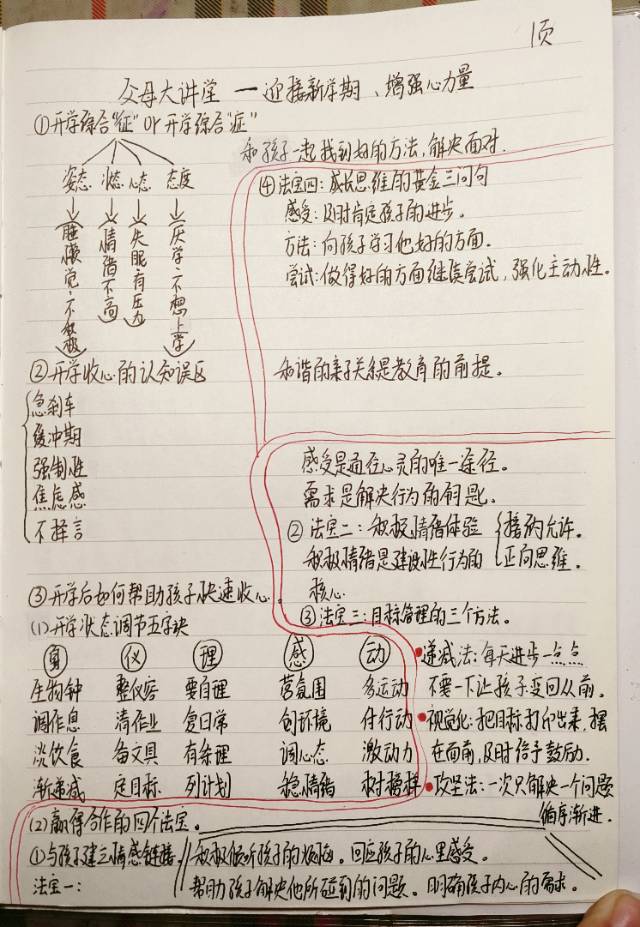 1页
父母大讲堂 — 迎接新学期、增强心力量
①开学综合"征" or 开学综合"症"
姿态 状态 心态 态度
睡懒觉·不
情绪不高
失眠·有压力
厌学·不想上学
②开学收心的认知误区
急刹车
缓冲期
强制性
焦虑感
不择言
③开学后如何帮助孩子快速收心.
(1)开学状态调节五字诀
身 仪 理 感 动
生物钟 整仪容 要自理 营氛围 多运动
调作息 清作业 复日常 创环境 付行动
淡饮食 备文具 有条理 调心态 激动力
渐递减 定目标 列计划 稳情绪 树榜样
(2)赢得合作的四个法宝.
①与孩子建立情感链接.
法宝一:
积极倾听孩子的烦恼。回应孩子的心里感受。
帮助孩子解决他所碰到的问题。明确孩子内心的需求。
感受是通往心灵的唯一途径。
需求是解决行为的钥匙。
②法宝二:积极情绪体验 接纳允许.
积极情绪是建设性行为的 正向思维.
核心
③法宝三:目标管理的三个方法。
递减法:每天进步一点点
不要一下让孩子变回从前。
视觉化:把目标打印出来,摆
在面前,及时给予鼓励.
攻坚法:一次只解决一个问题
循序渐进.
和孩子一起找到好的方法,解决面对.
④法宝四:成长思维的黄金三问句
感受:及时肯定孩子的进步.
方法:向孩子学习他好的方面.
尝试:做得好的方面继续尝试,强化主动性。
和谐的亲子关系是教育的前提。